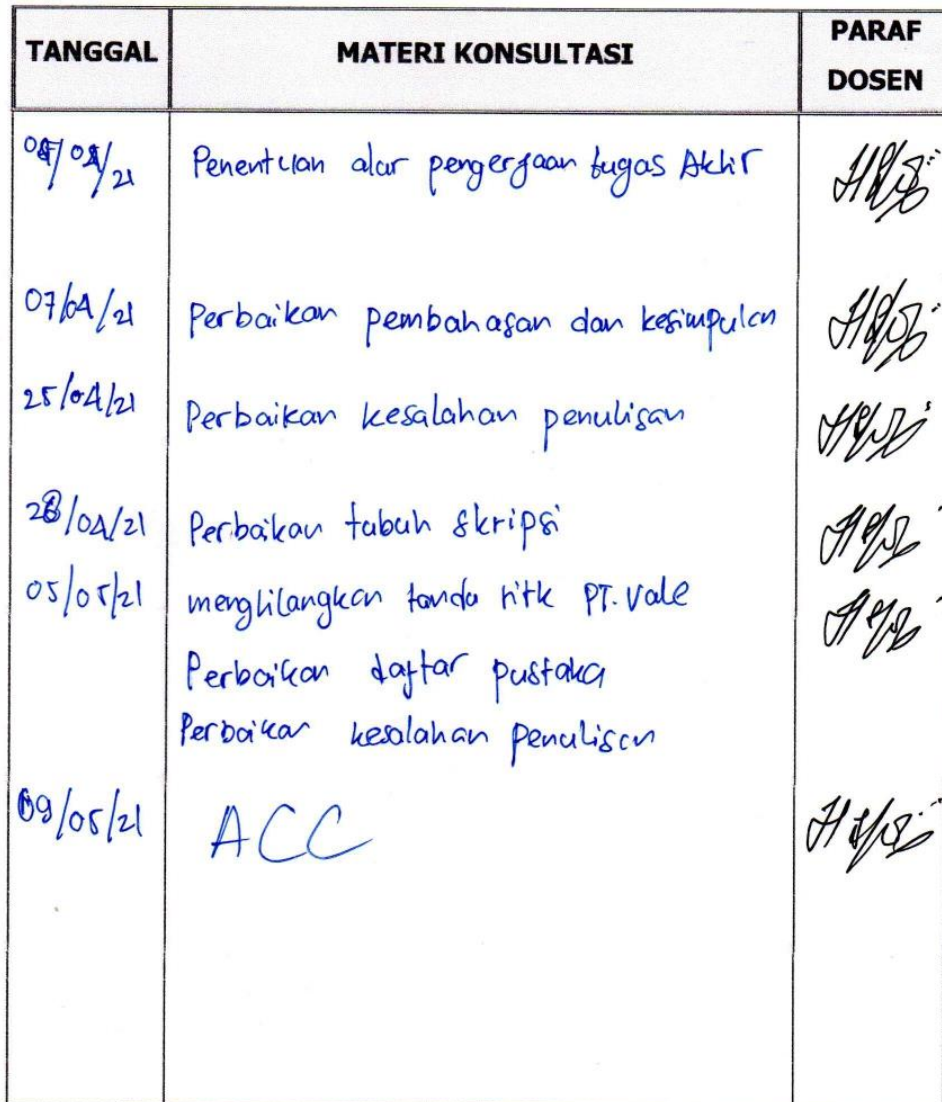 TANGGAL MATERI KONSULTASI PARAF DOSEN
Penentuan alur pengerjaan tugas Akhir
07/04/21 Perbaikan pembahasan dan kesimpulan
25/04/21 Perbaikan kesalahan penulisan
28/04/21 Perbaikan tubuh skripsi
05/05/21 menghilangkan tanda titik PT. Vale
Perbaikan daftar pustaka
Perbaikan kesalahan penulisan
09/05/21 ACC